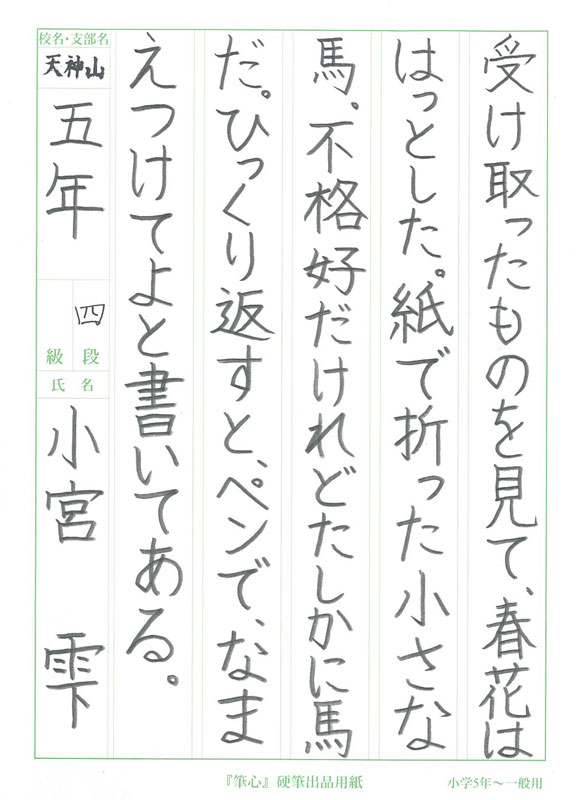 受け取ったものを見て、春花は
はっとした。紙で折った小さな
馬。不格好だけれどたしかに馬
だ。ひっくり返すと、ペンで、なま
えつけてよと書いてある。
校名・支部名
天神山
五年
四
段
級
氏名
小宮 雫
『筆心』硬筆出品用紙
小学5年～一般用